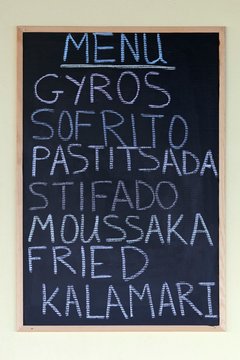 MENU
GYROS
SOFRITO
PASTITSADA
STIFADO
MOUSSAKA
FRIED
KALAMARI